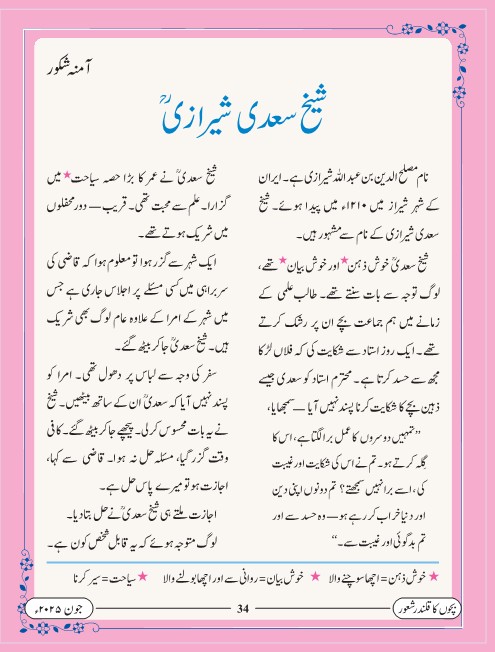 آمنہ شکور
شیخ سعدی شیرازیؒ
نام مصلح الدین بن عبداللہ شیرازی ہے۔ ایران
کے شہر شیراز میں ۱۲۱۰ء میں پیدا ہوئے۔ شیخ
سعدی شیرازی کے نام سے مشہور ہیں۔
شیخ سعدیؒ خوش ذہن* اور خوش بیان* تھے،
لوگ توجہ سے بات سنتے تھے۔ طالب علمی کے
زمانے میں ہم جماعت بچے ان پر رشک کرتے
تھے۔ ایک روز استاد سے شکایت کی کہ فلاں لڑکا
مجھ سے حسد کرتا ہے۔ محترم استاد کو سعدی جیسے
ذہین بچے کا شکایت کرنا پسند نہیں آیا — سمجھایا،
”تمہیں دوسروں کا عمل برا لگتا ہے، اس کا
گلہ کرتے ہو۔ تم نے اس کی شکایت اور غیبت
کی، اسے برا نہیں سمجھتے؟ تم دونوں اپنی دین
اور دنیا خراب کر رہے ہو — وہ حسد سے اور
تم بدگوئی اور غیبت سے۔“
شیخ سعدیؒ نے عمر کا بڑا حصہ سیاحت* میں
گزارا۔ علم سے محبت تھی۔ قریب — دور محفلوں
میں شریک ہوتے تھے۔
ایک شہر سے گزر ہوا تو معلوم ہوا کہ قاضی کی
سربراہی میں کسی مسئلے پر اجلاس جاری ہے جس
میں شہر کے امرا کے علاوہ عام لوگ بھی شریک
ہیں۔ شیخ سعدیؒ جا کر بیٹھ گئے۔
سفر کی وجہ سے لباس پر دھول تھی۔ امرا کو
پسند نہیں آیا کہ سعدیؒ ان کے ساتھ بیٹھیں۔ شیخ
نے یہ بات محسوس کر لی۔ پیچھے جا کر بیٹھ گئے۔ کافی
وقت گزر گیا، مسئلہ حل نہ ہوا۔ قاضی سے کہا،
اجازت ہو تو میرے پاس حل ہے۔
اجازت ملتے ہی شیخ سعدیؒ نے حل بتا دیا۔
لوگ متوجہ ہوئے کہ یہ قابل شخص کون ہے۔
* خوش ذہن = اچھا سوچنے والا * خوش بیان = روانی سے اور اچھا بولنے والا * سیاحت = سیر کرنا
بچوں کا قلندر شعور 34 جون ۲۰۲۵ء